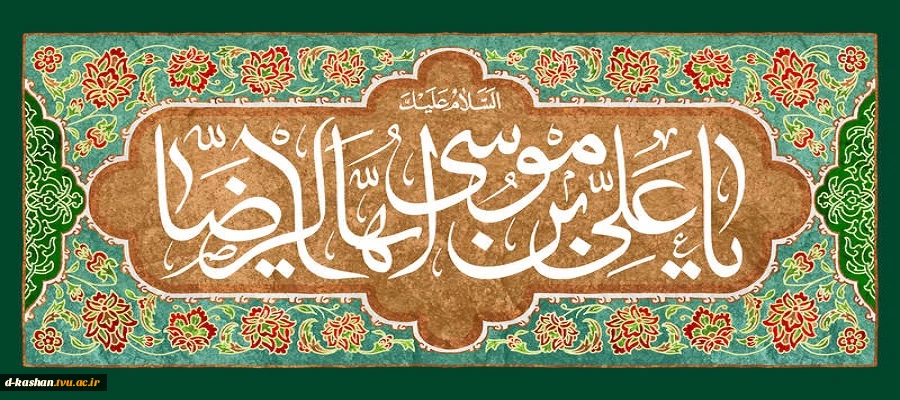 السَّلامُ عَلَیْكَ
یا عَلِیِّ بْنِ مُوسَی ایُّهَا الرِّضَا
d-kashan.tvu.ac.ir